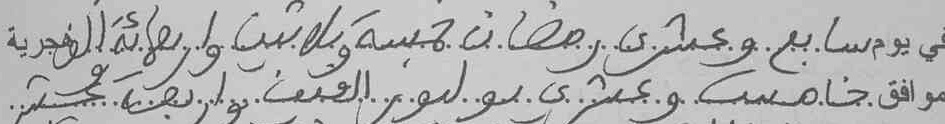 في يوم سابع وعشرى رمضان خمسة وثلاثين واربعمائة الهجرية
موافق خامس وعشرى يوليوز الفين واربعة عشر